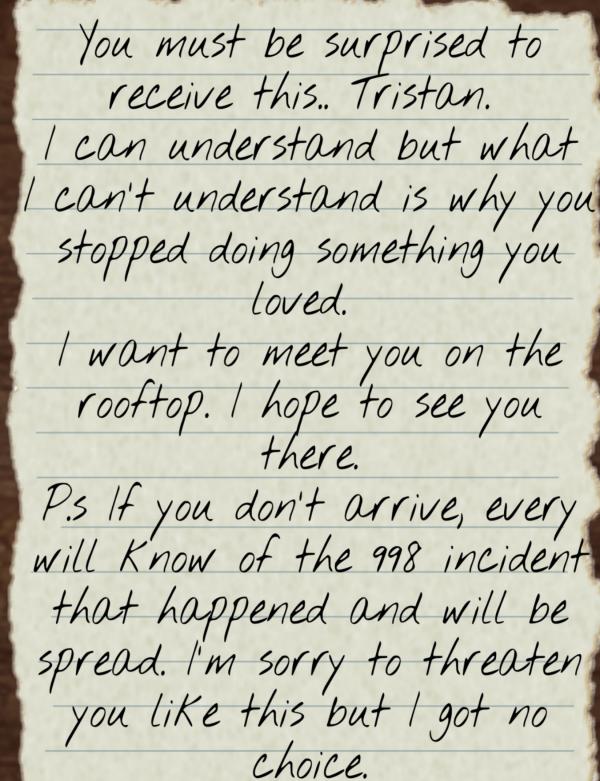 You must be surprised to
receive this.. Tristan.
I can understand but what
I can't understand is why you
stopped doing something you
loved.
I want to meet you on the
rooftop. I hope to see you
there.
P.s If you don't arrive, every
will Know of the 998 incident
that happened and will be
spread. I'm sorry to threaten
you like this but I got no
choice.